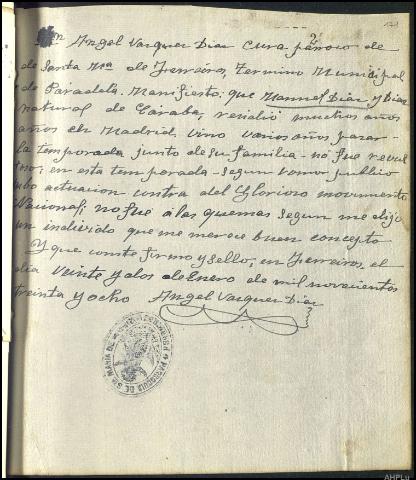 Don Angel Vazquez Diaz Cura párroco de
de Santa Mª de Ferreiros, termino Municipal
de Paradela. Manifiesto: que Manuel Diaz y Diaz
natural de Caraba, residió muchos años
años en Madrid, vino varios años pasar
la temporada junto de su familia - no fue revol
toso; en esta temporada - segun rumor publico
ubo actuacion contra del Glorioso movimento
Nacional; no fué a las quemas segun me dijo
un individo que me merece buen concepto
Y que conste firmo y sello, en Ferreiros, el
dia veinte y dos de Enero de mil novecientos
treinta y ocho Angel Vazquez Diaz
PARROQUIA DE Sta MARIA DE FERREIROS
AHPLu